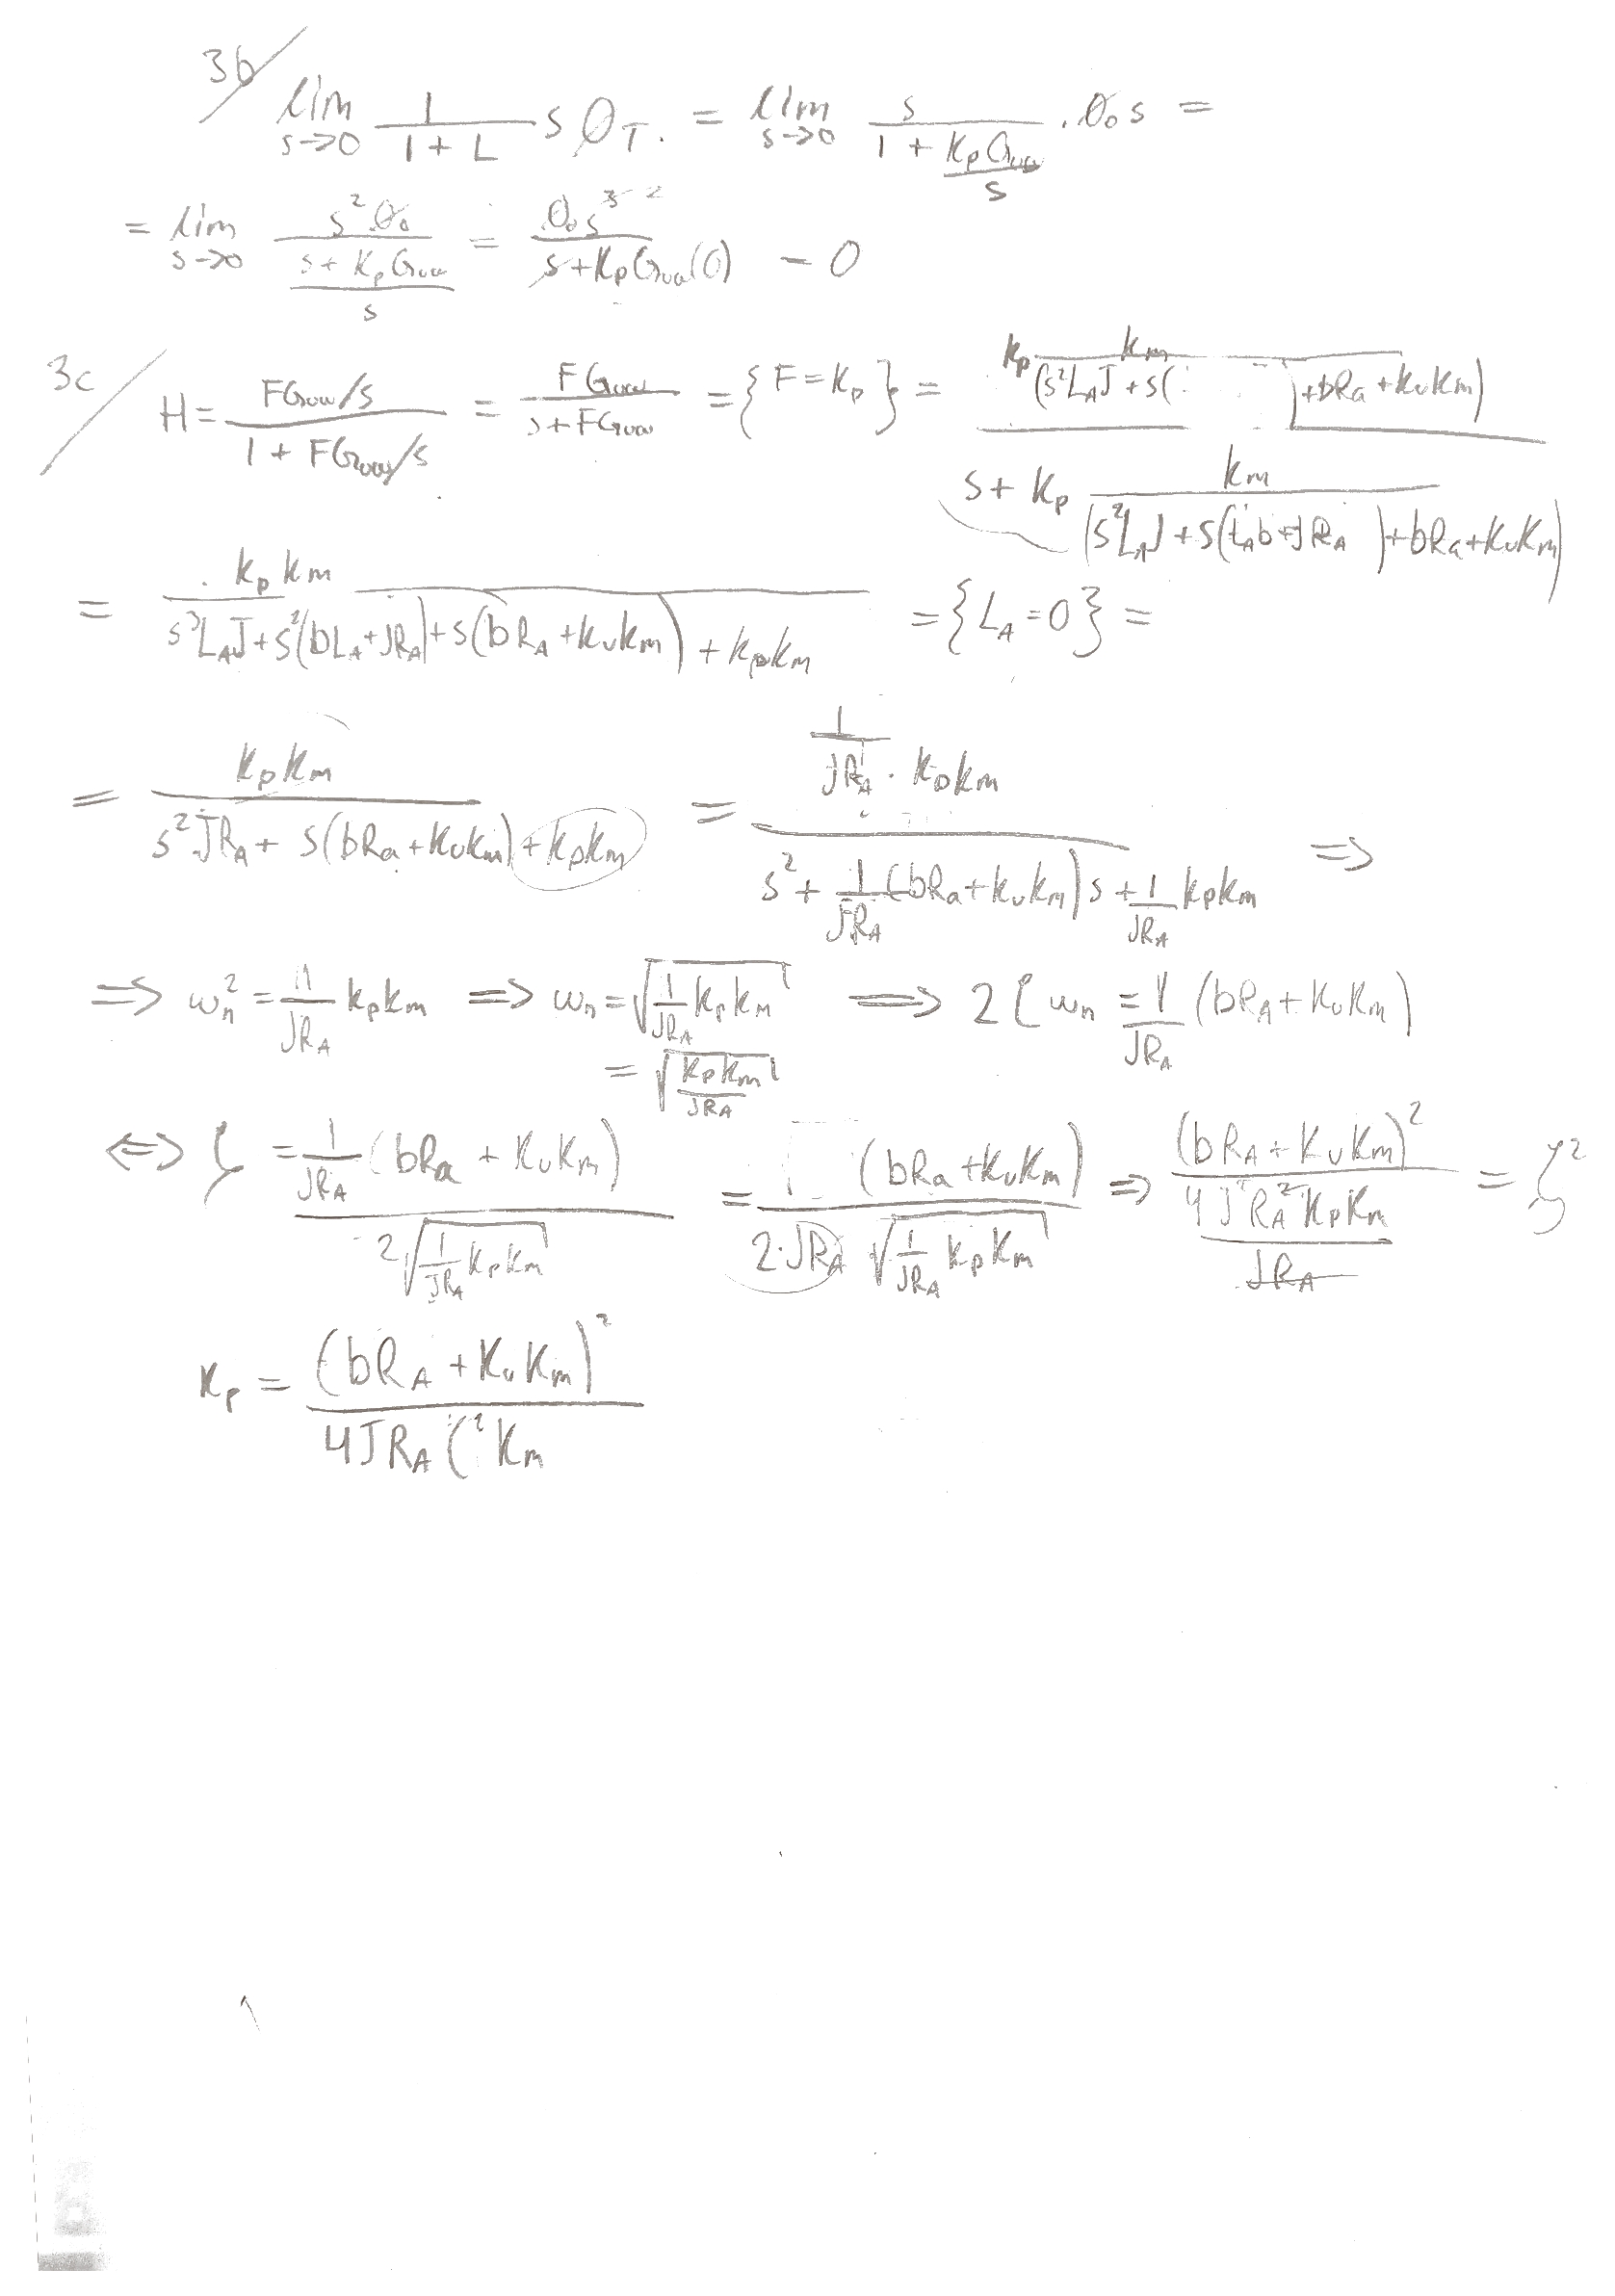 3b
lim_{s→0} 1/(1 + L) s θ_T. = lim_{s→0} s/(1 + K_p G_{uω}/s) · θ_0 s =
= lim_{s→0} s² θ_0/((s + K_p G_{uω})/s) = θ_0 s^{3-2}/(s + K_p G_{uω}(0)) - 0
3c
H = (F G_{uω}/s)/(1 + F G_{uω}/s) = F G_{uω}/(s + F G_{uω}) = {F = K_p} = (K_p K_m/(s² L_A J + s( ) + bR_a + K_v K_m))/(s + K_p K_m/(s² L_A J + s(L_A b + J R_A) + bR_a + K_v K_m))
= K_p K_m/(s³ L_A J + s²(bL_A + JR_A) + s(bR_A + K_v K_m) + K_p K_m) = {L_A = 0} =
= K_p K_m/(s² JR_A + s(bR_a + K_v K_m) + K_p K_m) = (1/(JR_A) · K_p K_m)/(s² + 1/(JR_A) (bR_a + K_v K_m) s + 1/(JR_A) K_p K_m) ⇒
⇒ ω_n² = 1/(JR_A) K_p K_m ⇒ ω_n = √(1/(JR_A) K_p K_m) ⇒ 2 ζ ω_n = 1/(JR_A) (bR_A + K_v K_m)
= √(K_p K_m/(JR_A))
⇔ ζ = (1/(JR_A) (bR_a + K_v K_m))/(2√(1/(JR_A) K_p K_m)) = (bR_a + K_v K_m)/(2·JR_A √(1/(JR_A) K_p K_m)) ⇒ (bR_A + K_v K_m)²/(4J²R_A² K_p K_m/(JR_A)) = ζ²
K_p = (bR_A + K_v K_m)²/(4JR_A ζ² K_m)